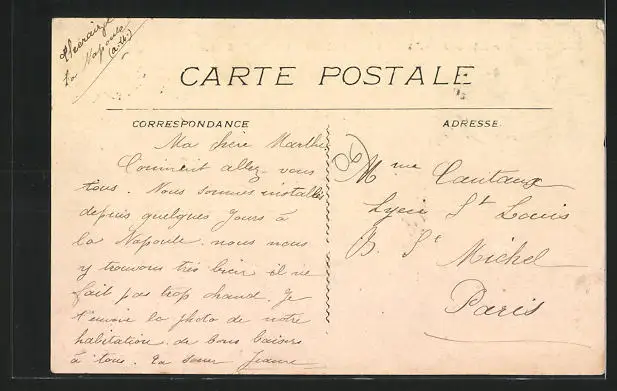 La Napoule
(a.M.)
CARTE POSTALE
CORRESPONDANCE
ADRESSE
Ma chère Marthe
Comment allez vous
tous. Nous sommes installés
depuis quelques jours à
la Napoule. nous nous
y trouvons très bien il ne
fait pas trop chaud. Je
t'envoie la photo de notre
habitation. de bons baisers
à tous. ta sœur Jeanne
06
Mme Cantaux
Lycée St Louis
B. St Michel
Paris